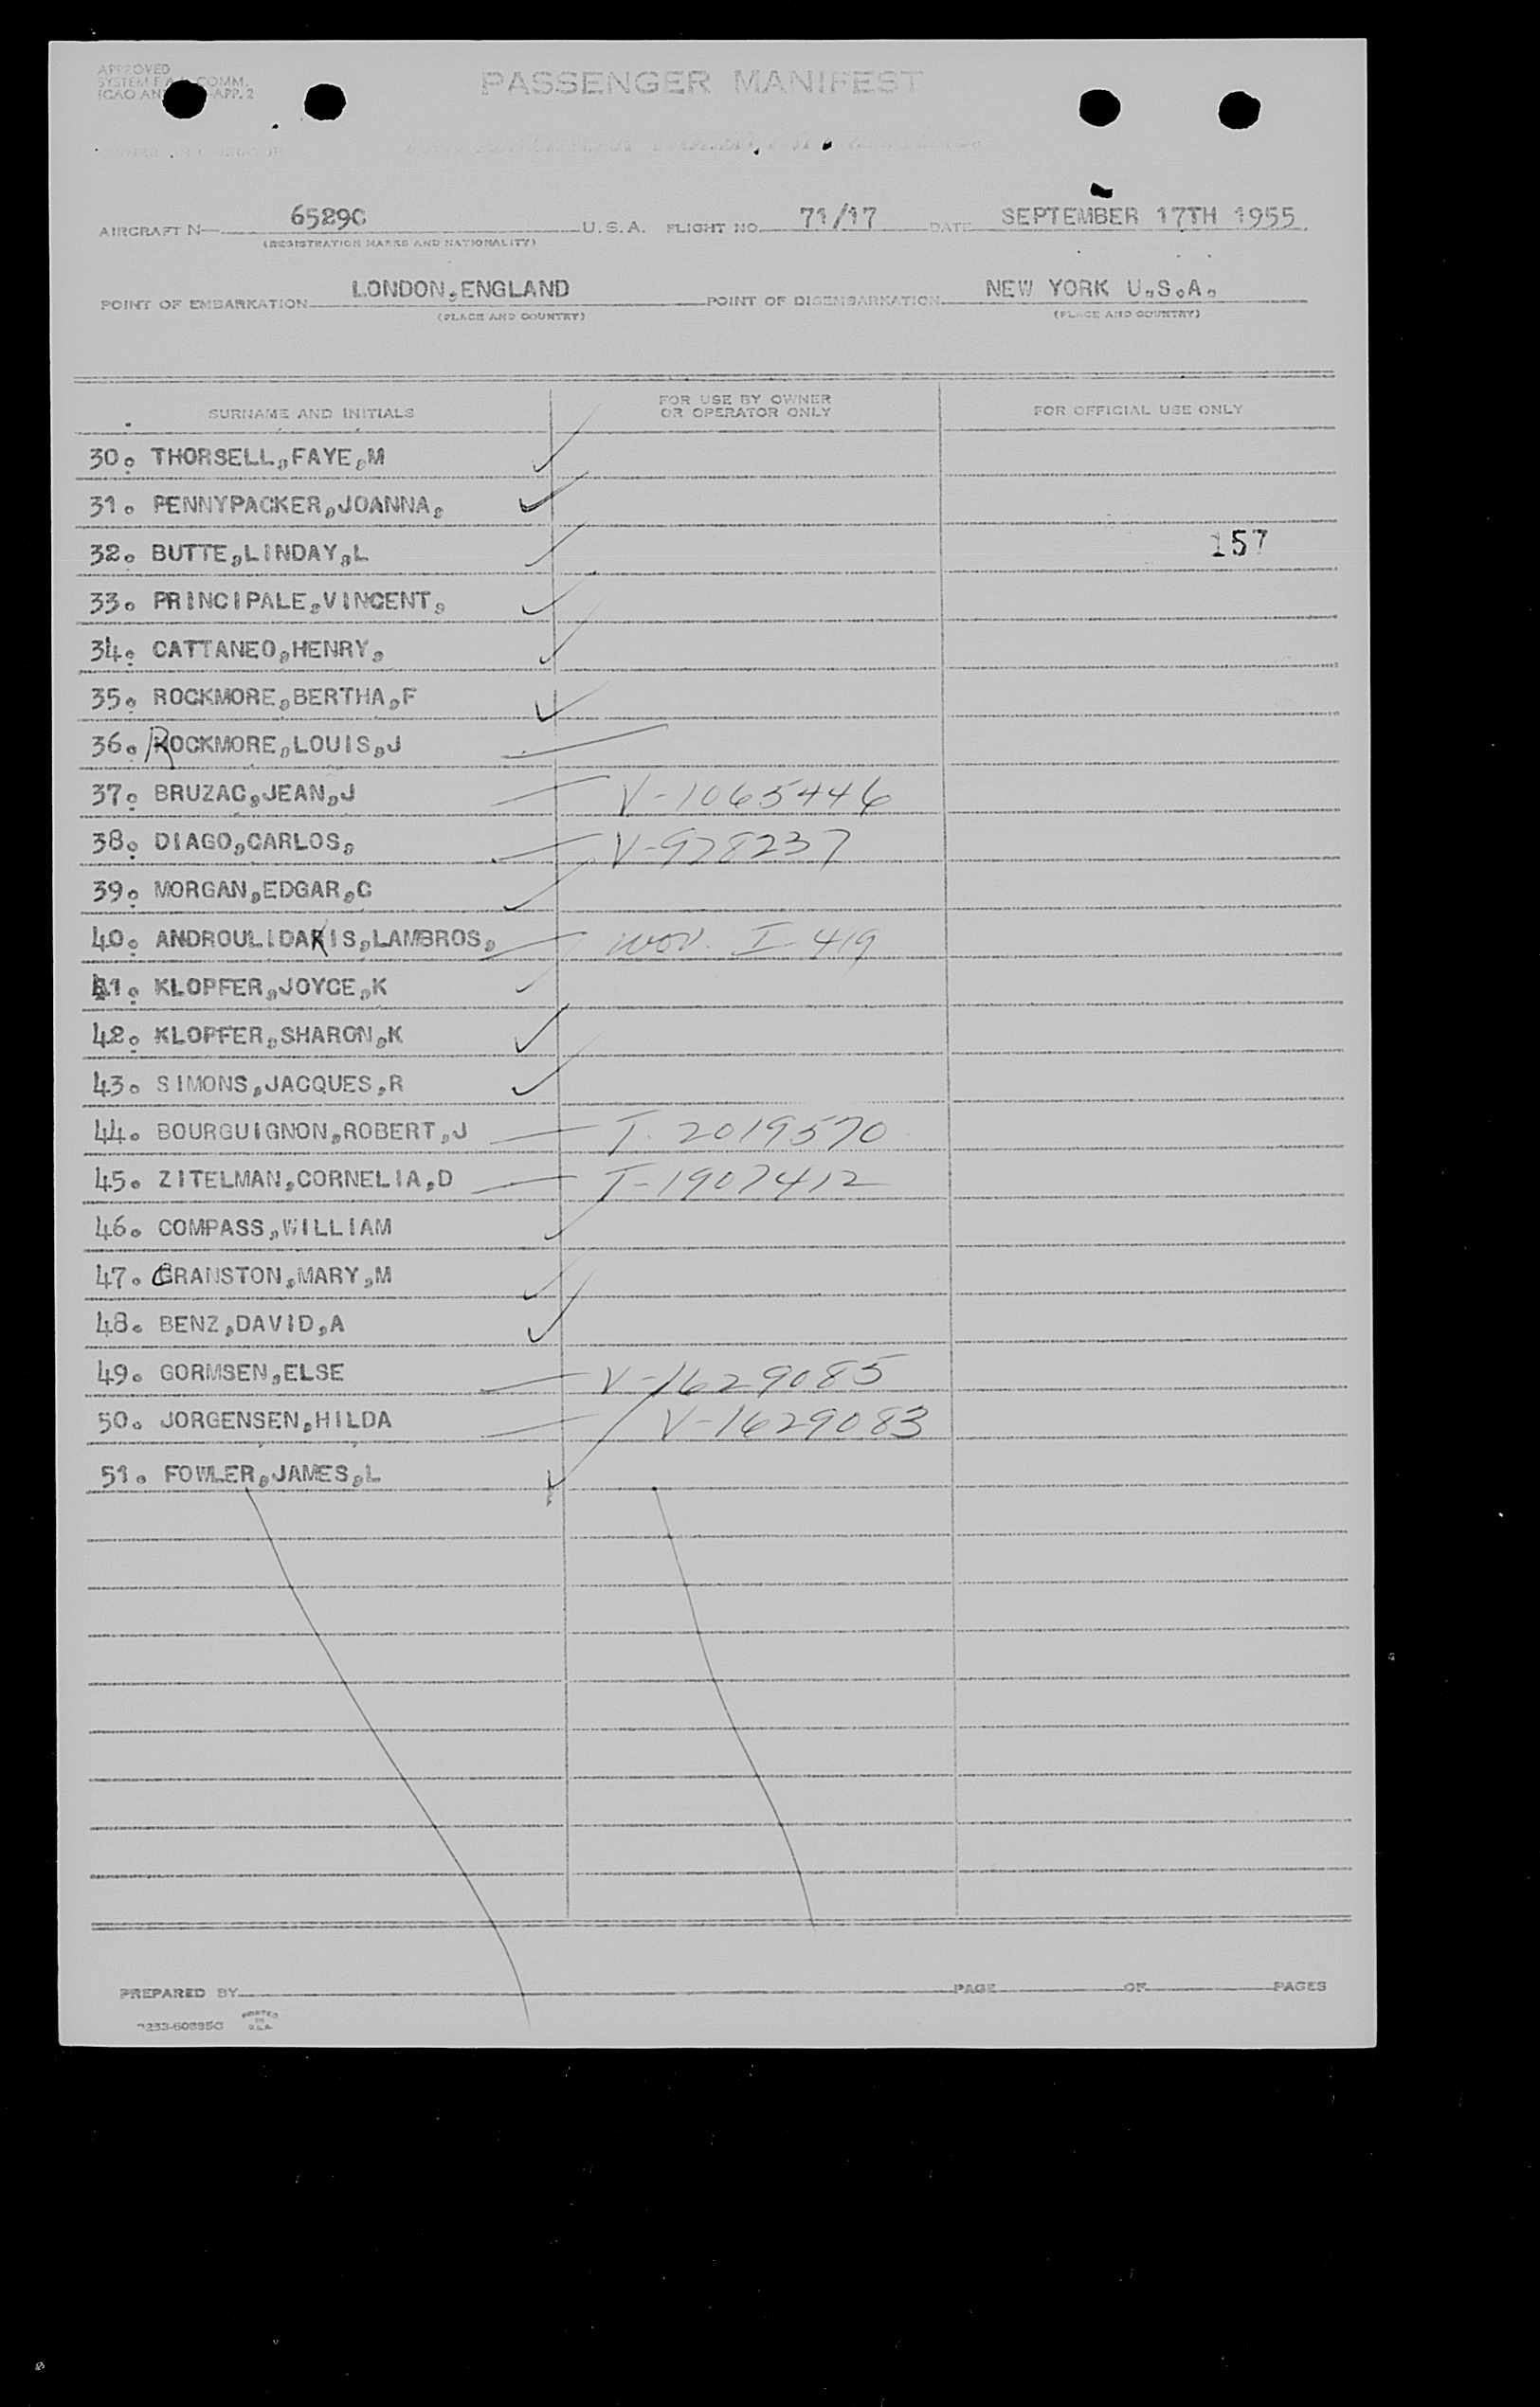 APPROVED
PASSENGER MANIFEST
AIRCRAFT N 6529C U.S.A. FLIGHT NO. 71/17 DATE SEPTEMBER 17TH 1955.
(REGISTRATION MARKS AND NATIONALITY)
POINT OF EMBARKATION LONDON,ENGLAND POINT OF DISEMBARKATION NEW YORK U.S.A.
(PLACE AND COUNTRY) (PLACE AND COUNTRY)
SURNAME AND INITIALS FOR USE BY OWNER OR OPERATOR ONLY FOR OFFICIAL USE ONLY
30. THORSELL,FAYE,M
31. PENNYPACKER,JOANNA,
32. BUTTE,LINDAY,L 157
33. PRINCIPALE,VINCENT,
34. CATTANEO,HENRY,
35. ROCKMORE,BERTHA,F
36. ROCKMORE,LOUIS,J
37. BRUZAC,JEAN,J V-1065446
38. DIAGO,CARLOS, V-928237
39. MORGAN,EDGAR,C
40. ANDROULIDAKIS,LAMBROS, I 419
41. KLOPFER,JOYCE,K
42. KLOPFER,SHARON,K
43. SIMONS,JACQUES,R
44. BOURGUIGNON,ROBERT,J I. 2019570
45. ZITELMAN,CORNELIA,D I-1907412
46. COMPASS,WILLIAM
47. CRANSTON,MARY,M
48. BENZ,DAVID,A
49. GORMSEN,ELSE V-1629085
50. JORGENSEN,HILDA V-1629083
51. FOWLER,JAMES,L
PREPARED BY PAGE OF PAGES
PRINTED IN U.S.A.